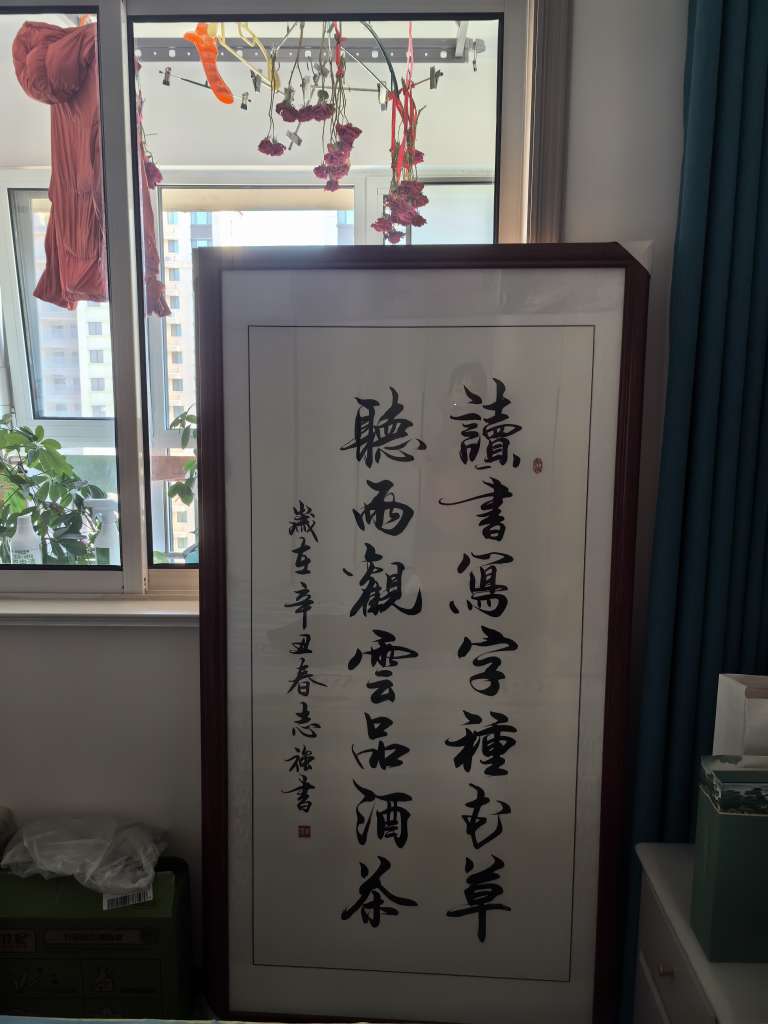 讀書寫字種花草
聽雨觀雲品酒茶
歲在辛丑春志強書